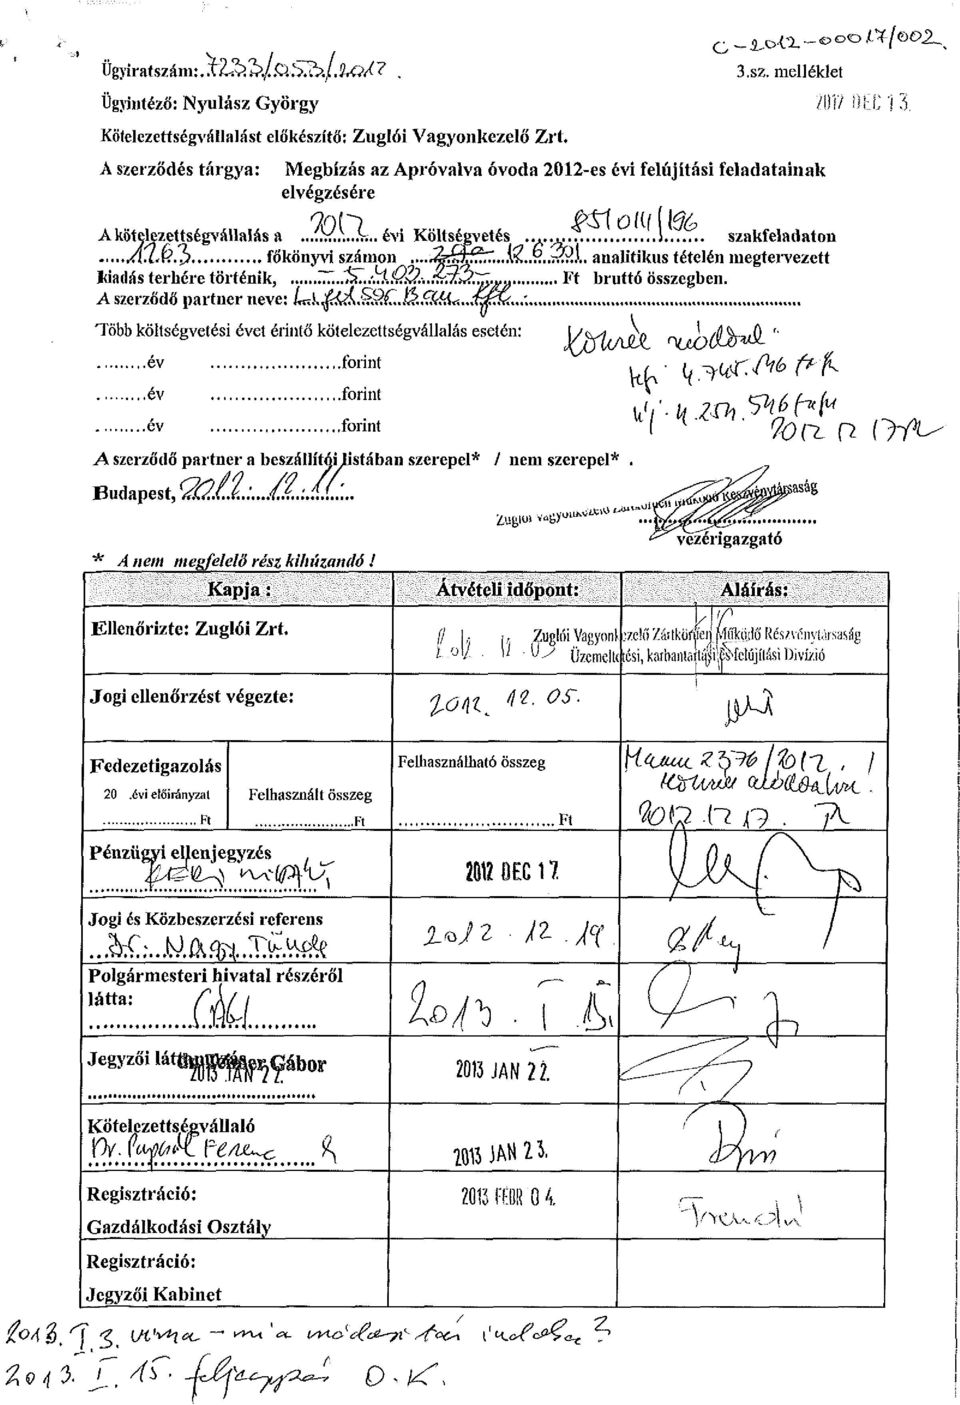 C-2012-00017/002
3.sz. melléklet
2012 DEC 13.
Ügyiratszám: 7233/053/2012.
Ügyintéző: Nyulász György
Kötelezettségvállalást előkészítő: Zuglói Vagyonkezelő Zrt.
A szerződés tárgya: Megbízás az Apróvalva óvoda 2012-es évi felújítási feladatainak
elvégzésére
A kötelezettségvállalás a 2012 évi Költségvetés szakfeladaton
1263 főkönyvi számon 12.6.301 analitikus tételén megtervezett
kiadás terhére történik, 5.403.273 Ft bruttó összegben.
A szerződő partner neve: Bau Kft.
Több költségvetési évet érintő kötelezettségvállalás esetén:
.........év ......................forint
.........év ......................forint
.........év ......................forint
A szerződő partner a beszállítói listában szerepel* / nem szerepel* .
Budapest, 2012. 12. 11.
Zuglói
vezérigazgató
* A nem megfelelő rész kihúzandó !
Kapja : Átvételi időpont: Aláírás:
Ellenőrizte: Zuglói Zrt.
Zuglói Vagyonkezelő Zártkörűen Működő Részvénytársaság
Üzemeltetési, karbantartási és felújítási Divízió
Jogi ellenőrzést végezte: 2012. 12. 05.
Fedezetigazolás
20 .évi előirányzat Felhasznált összeg Felhasználható összeg
......................Ft ......................Ft ......................Ft
2012.12.17.
Pénzügyi ellenjegyzés 2012 DEC 17.
Jogi és Közbeszerzési referens
Dr. Nagy Tünde 2012. 12. 19.
Polgármesteri hivatal részéről
látta:
2013. I. 15.
Jegyzői 2013 JAN 22.
Gábor
2013 JAN 22.
Kötelezettségvállaló
Dr. Papcsák Ferenc 2013 JAN 23.
Regisztráció: 2013 FEBR 04.
Gazdálkodási Osztály
Regisztráció:
Jegyzői Kabinet
2013. I. 3. vissza - mi a módosítás indoka?
2013. I. 15. feljegyzés O.K.